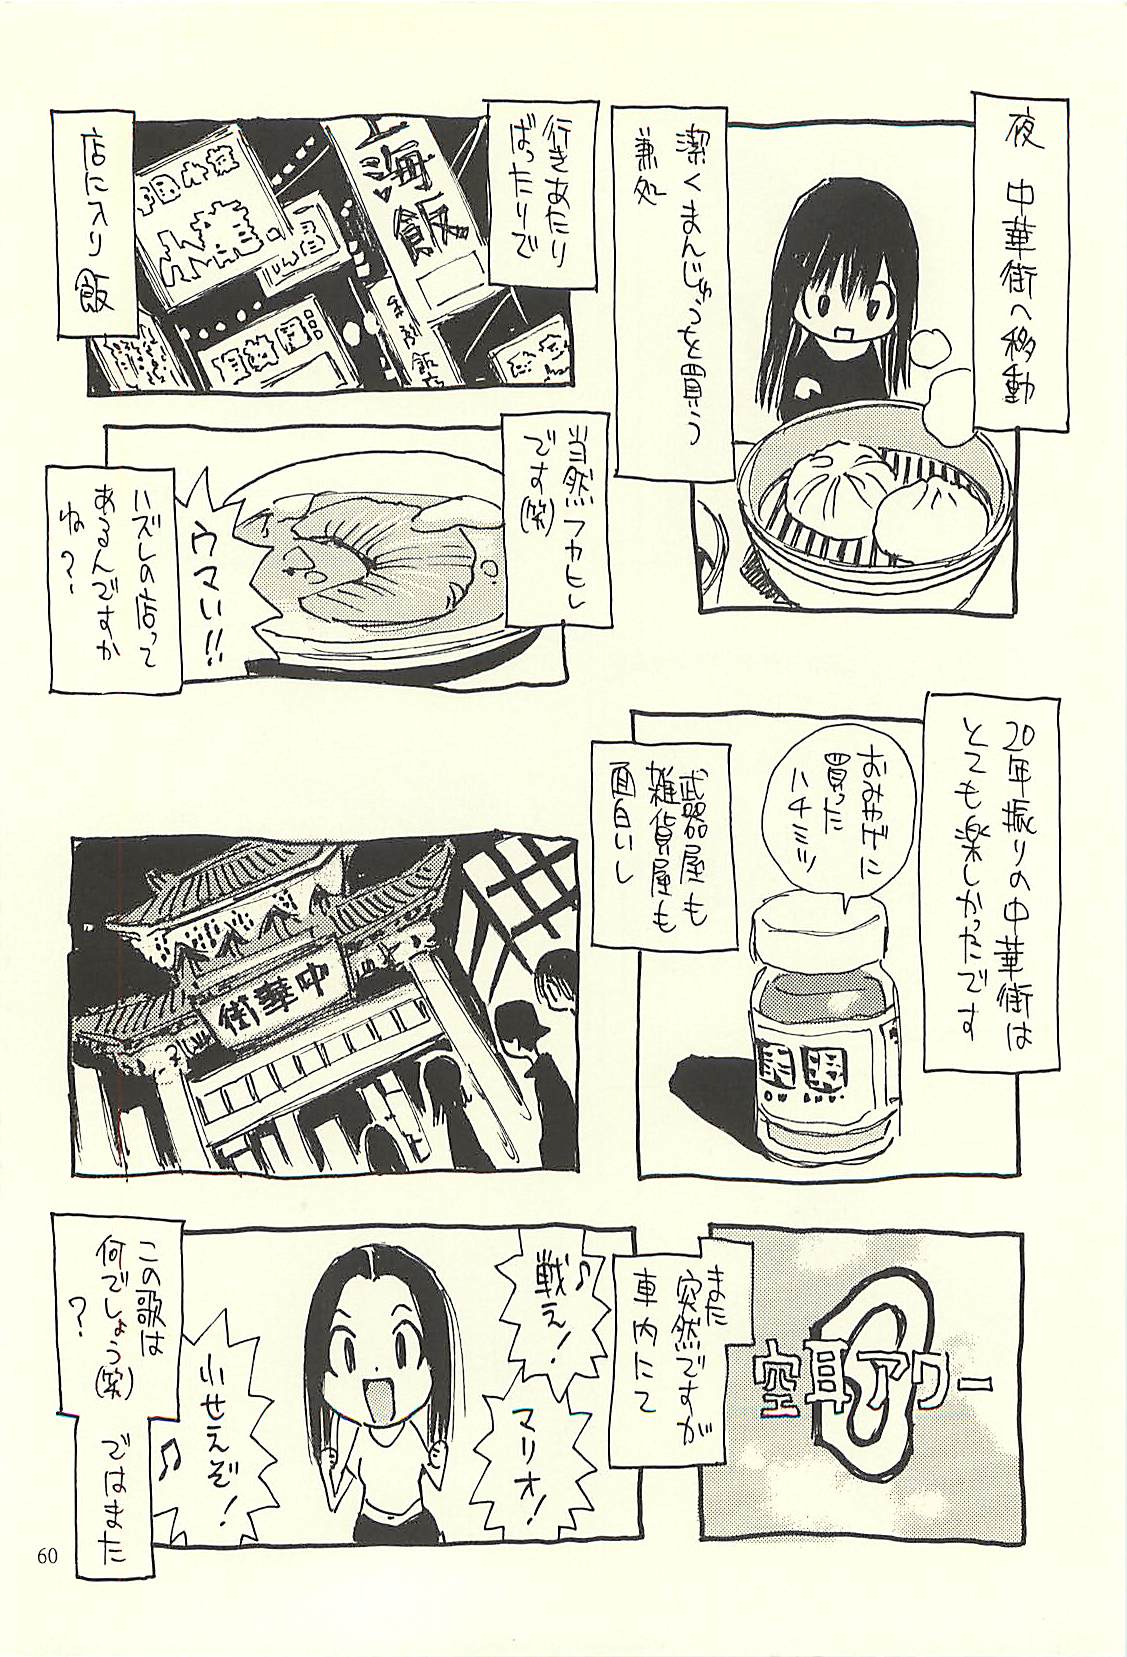 夜 中華街へ移動
潔くまんじゅうを買う
兼処
行きあたり
ばったりで
上海
飯
店に入り 飯
当然フカヒレ
です(笑)
ウマい!!
ハズレの店って
あるんですか
ね?
20年振りの中華街は
とても楽しかったです
おみやげに
買った
ハチミツ
武器屋も
雑貨屋も
面白いし
中華街
空耳アワー
また
突然ですが
車内にて
戦え!
マリオ!
小せえぞ!
この歌は
何でしょう(笑)
?
ではまた
60